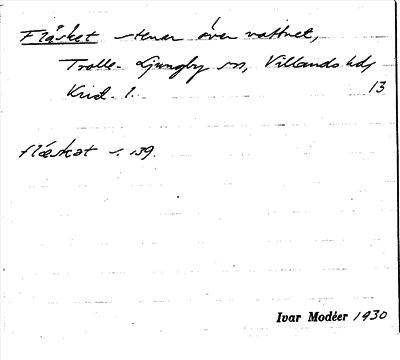 Fläsket stenar över vattnet,
Trolle-Ljungby sn, Villands hd,
Krist. l. 13
flæskət s. 139.
Ivar Modéer 1930